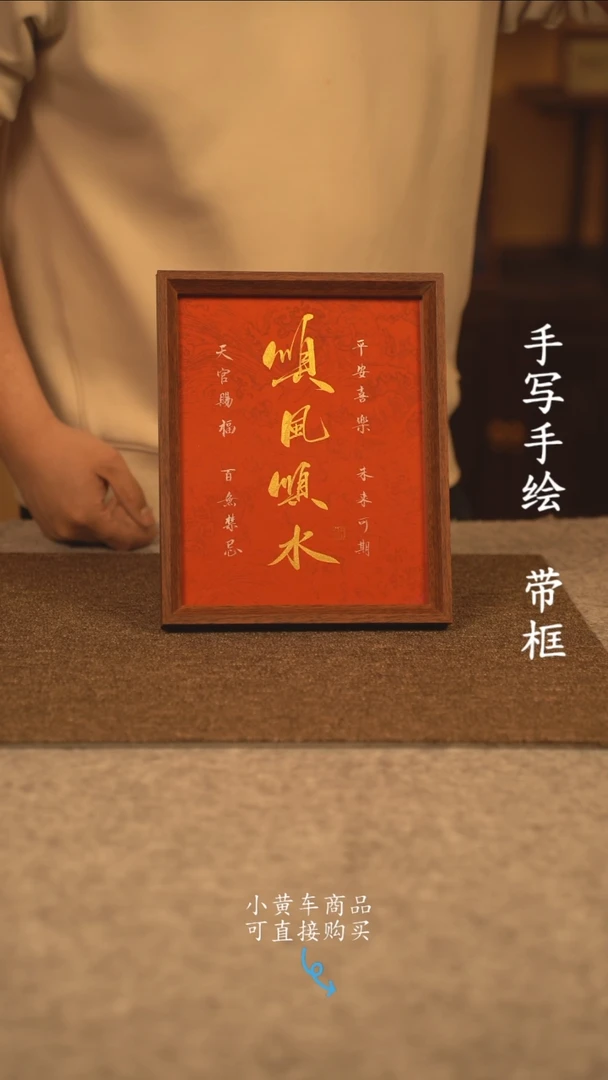 手写手绘 带框
平安喜樂 未来可期
順風順水
天官賜福 百無禁忌
小黄车商品
可直接购买